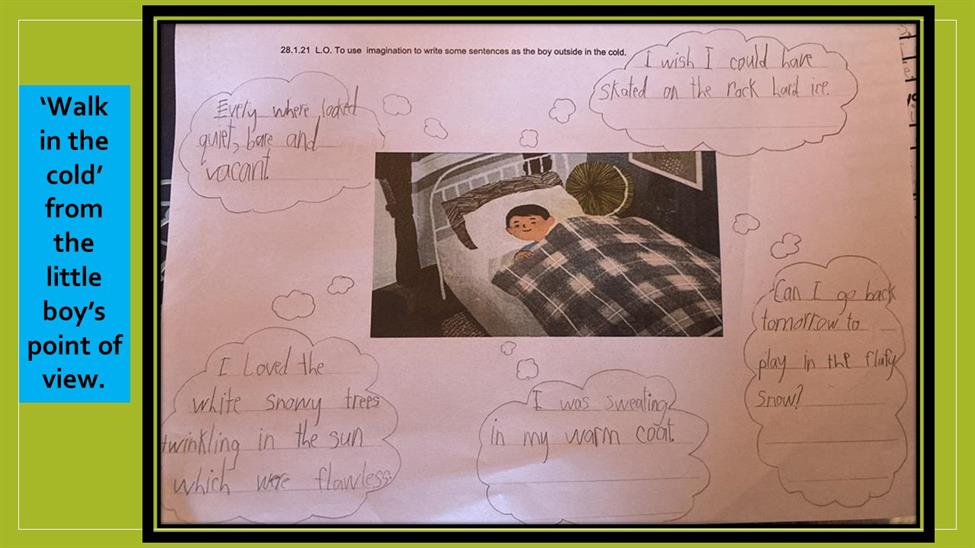 ‘Walk
in the
cold’
from
the
little
boy’s
point of
view.
28.1.21 L.O. To use imagination to write some sentences as the boy outside in the cold.
Every where looked
quiet, bare and
vacant.
I wish I could have
skated on the rock hard ice.
Can I go back
tomorrow to
play in the flufy
snow?
I Loved the
white snowy trees
twinkling in the sun
which were flawless
I was sweating
in my warm coat.